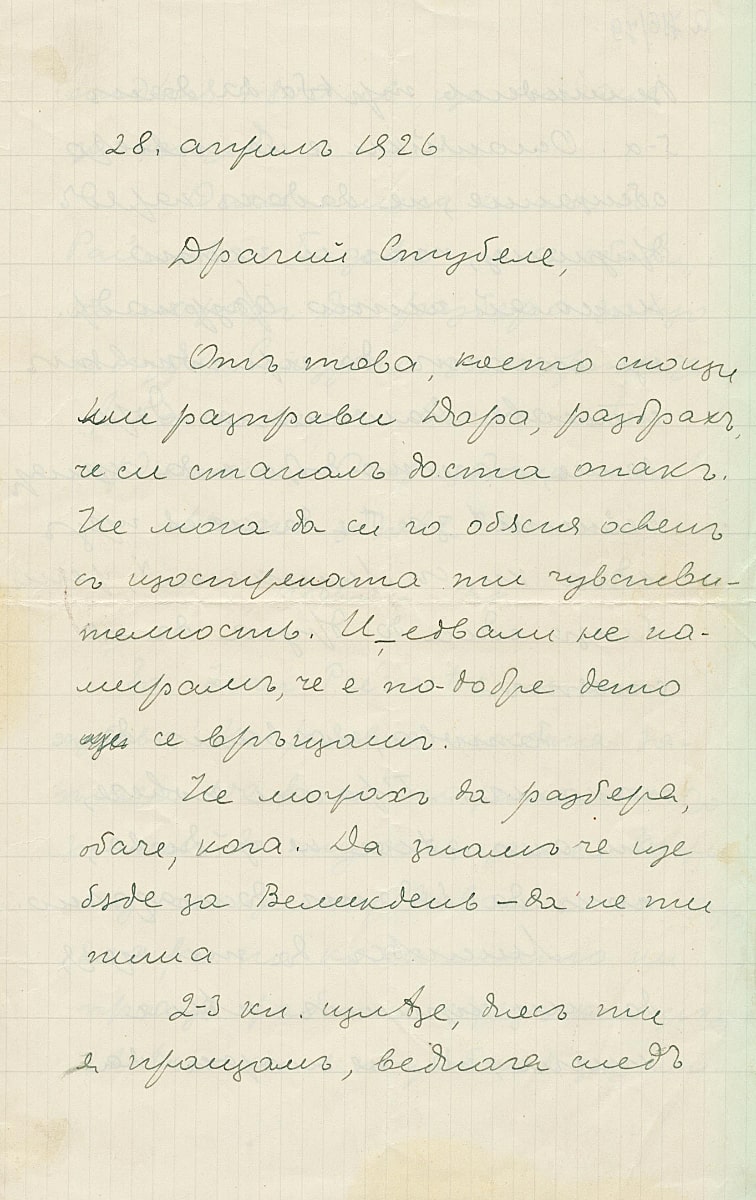 28. априлъ 1926
Драгий Стубеле,
Отъ това, което снощи
ми разправи Дора, разбрахъ,
че си станалъ доста опакъ.
Не мога да си го обясня освенъ
съ изострената ти чувстви-
телность. И едвали не на-
мирамъ, че е по-добре дето
се връщашъ.
Не можахъ да разбера,
обаче, кога. Да знамъ че ще
бѫде за Великденъ – да не ти
пиша
2-3 кн. излѣзе, днесъ ти
я пращамъ, веднага следъ